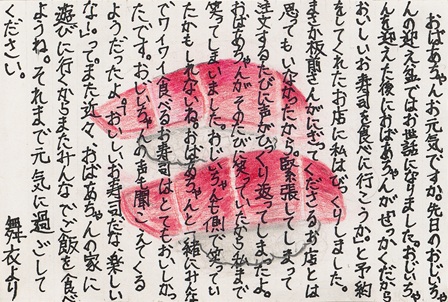 おばあちゃんお元気ですか。先日のおじいち
ゃんの迎え盆ではお世話になりました。おじいちゃ
んを迎えた後におばあちゃんがせっかくだから
おいしいお寿司を食べに行こうかと予約
をしてくれたお店に私はびっくりしました。
まさか板前さんがにぎってくださるお店とは
思ってもいなかったから。緊張してしまって
注文するたびに声がひっくり返ってしまったよ。
おばあちゃんがそのたびに笑っていたから私まで
笑ってしまいました。おじいちゃんも側で笑ってい
たかもしれないね。おばあちゃんと一緒にみんな
でワイワイ食べるお寿司はとてもおいしかっ
たです。おじいちゃんの声も聞こえてくる
ようだったよ。「おいしいお寿司だな、楽しい
な」って。また近々、おばあちゃんの家に
遊びに行くからまたみんなでご飯を食べ
ようね。それまで元気に過ごして
ください。
舞衣より